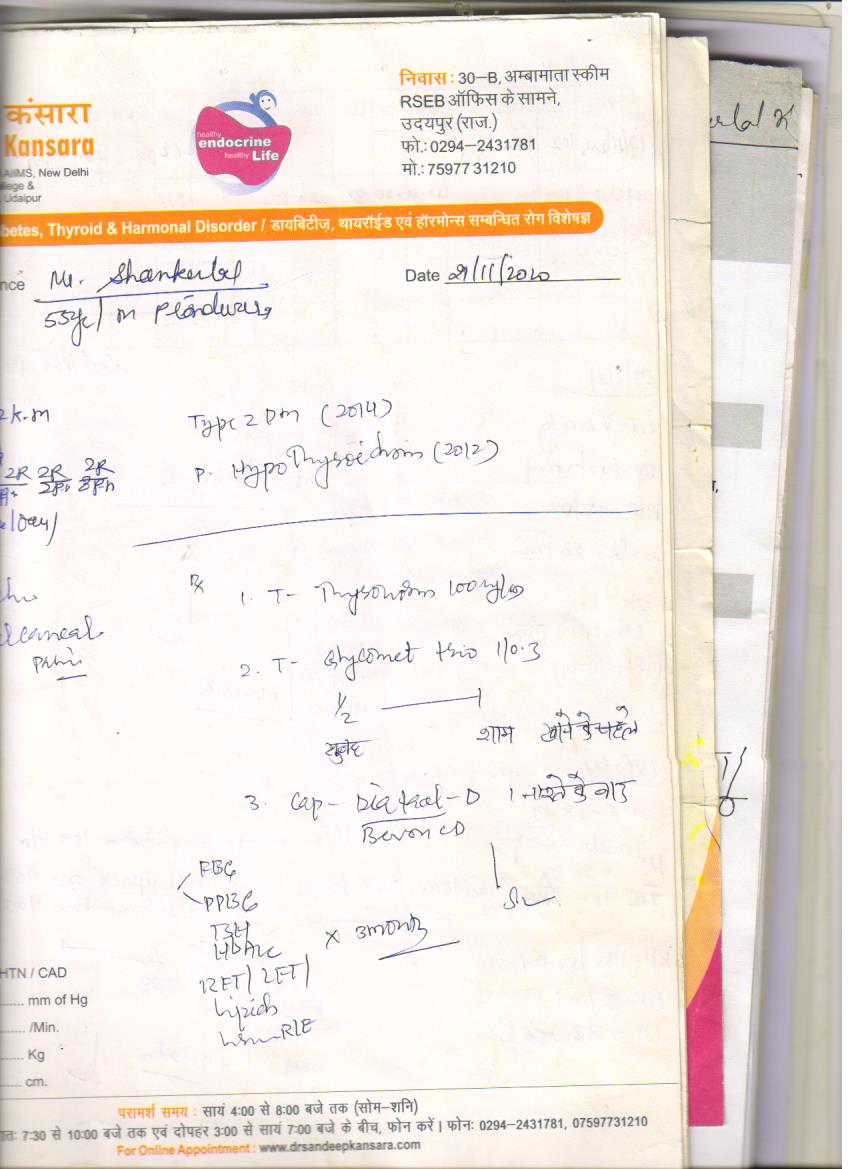 कंसारा
Kansara
AIIMS, New Delhi
llege &
Udaipur
healthy
endocrine
healthy Life
निवास : 30–B, अम्बामाता स्कीम
RSEB ऑफिस के सामने,
उदयपुर (राज.)
फो.: 0294–2431781
मो.: 75977 31210
betes, Thyroid & Harmonal Disorder / डायबिटीज़, थायरॉईड एवं हॉरमोन्स सम्बन्धित रोग विशेषज्ञ
nce Mr. Shankerlal
Date 21/11/2020
55yr/ M
Type 2 DM (2014)
P. Hypothyroidism (2012)
2R 2R 2R
Calcaneal
Pain
Rx
1. T- Thyronorm 100
2. T- Glycomet trio 1/0.3
1/2
सुबह शाम खाने के पहले
3. Cap- D 1 नाश्ते के बाद
FBG
PPBG
TSH
HbA1c
x 3 month
RFT/ LFT/
Lipids
Urine R/E
HTN / CAD
..... mm of Hg
..... /Min.
.... Kg
.... cm.
परामर्श समय : सायं 4:00 से 8:00 बजे तक (सोम–शनि)
ातः 7:30 से 10:00 बजे तक एवं दोपहर 3:00 से सायं 7:00 बजे के बीच, फोन करें । फोनः 0294-2431781, 07597731210
For Online Appointment : www.drsandeepkansara.com